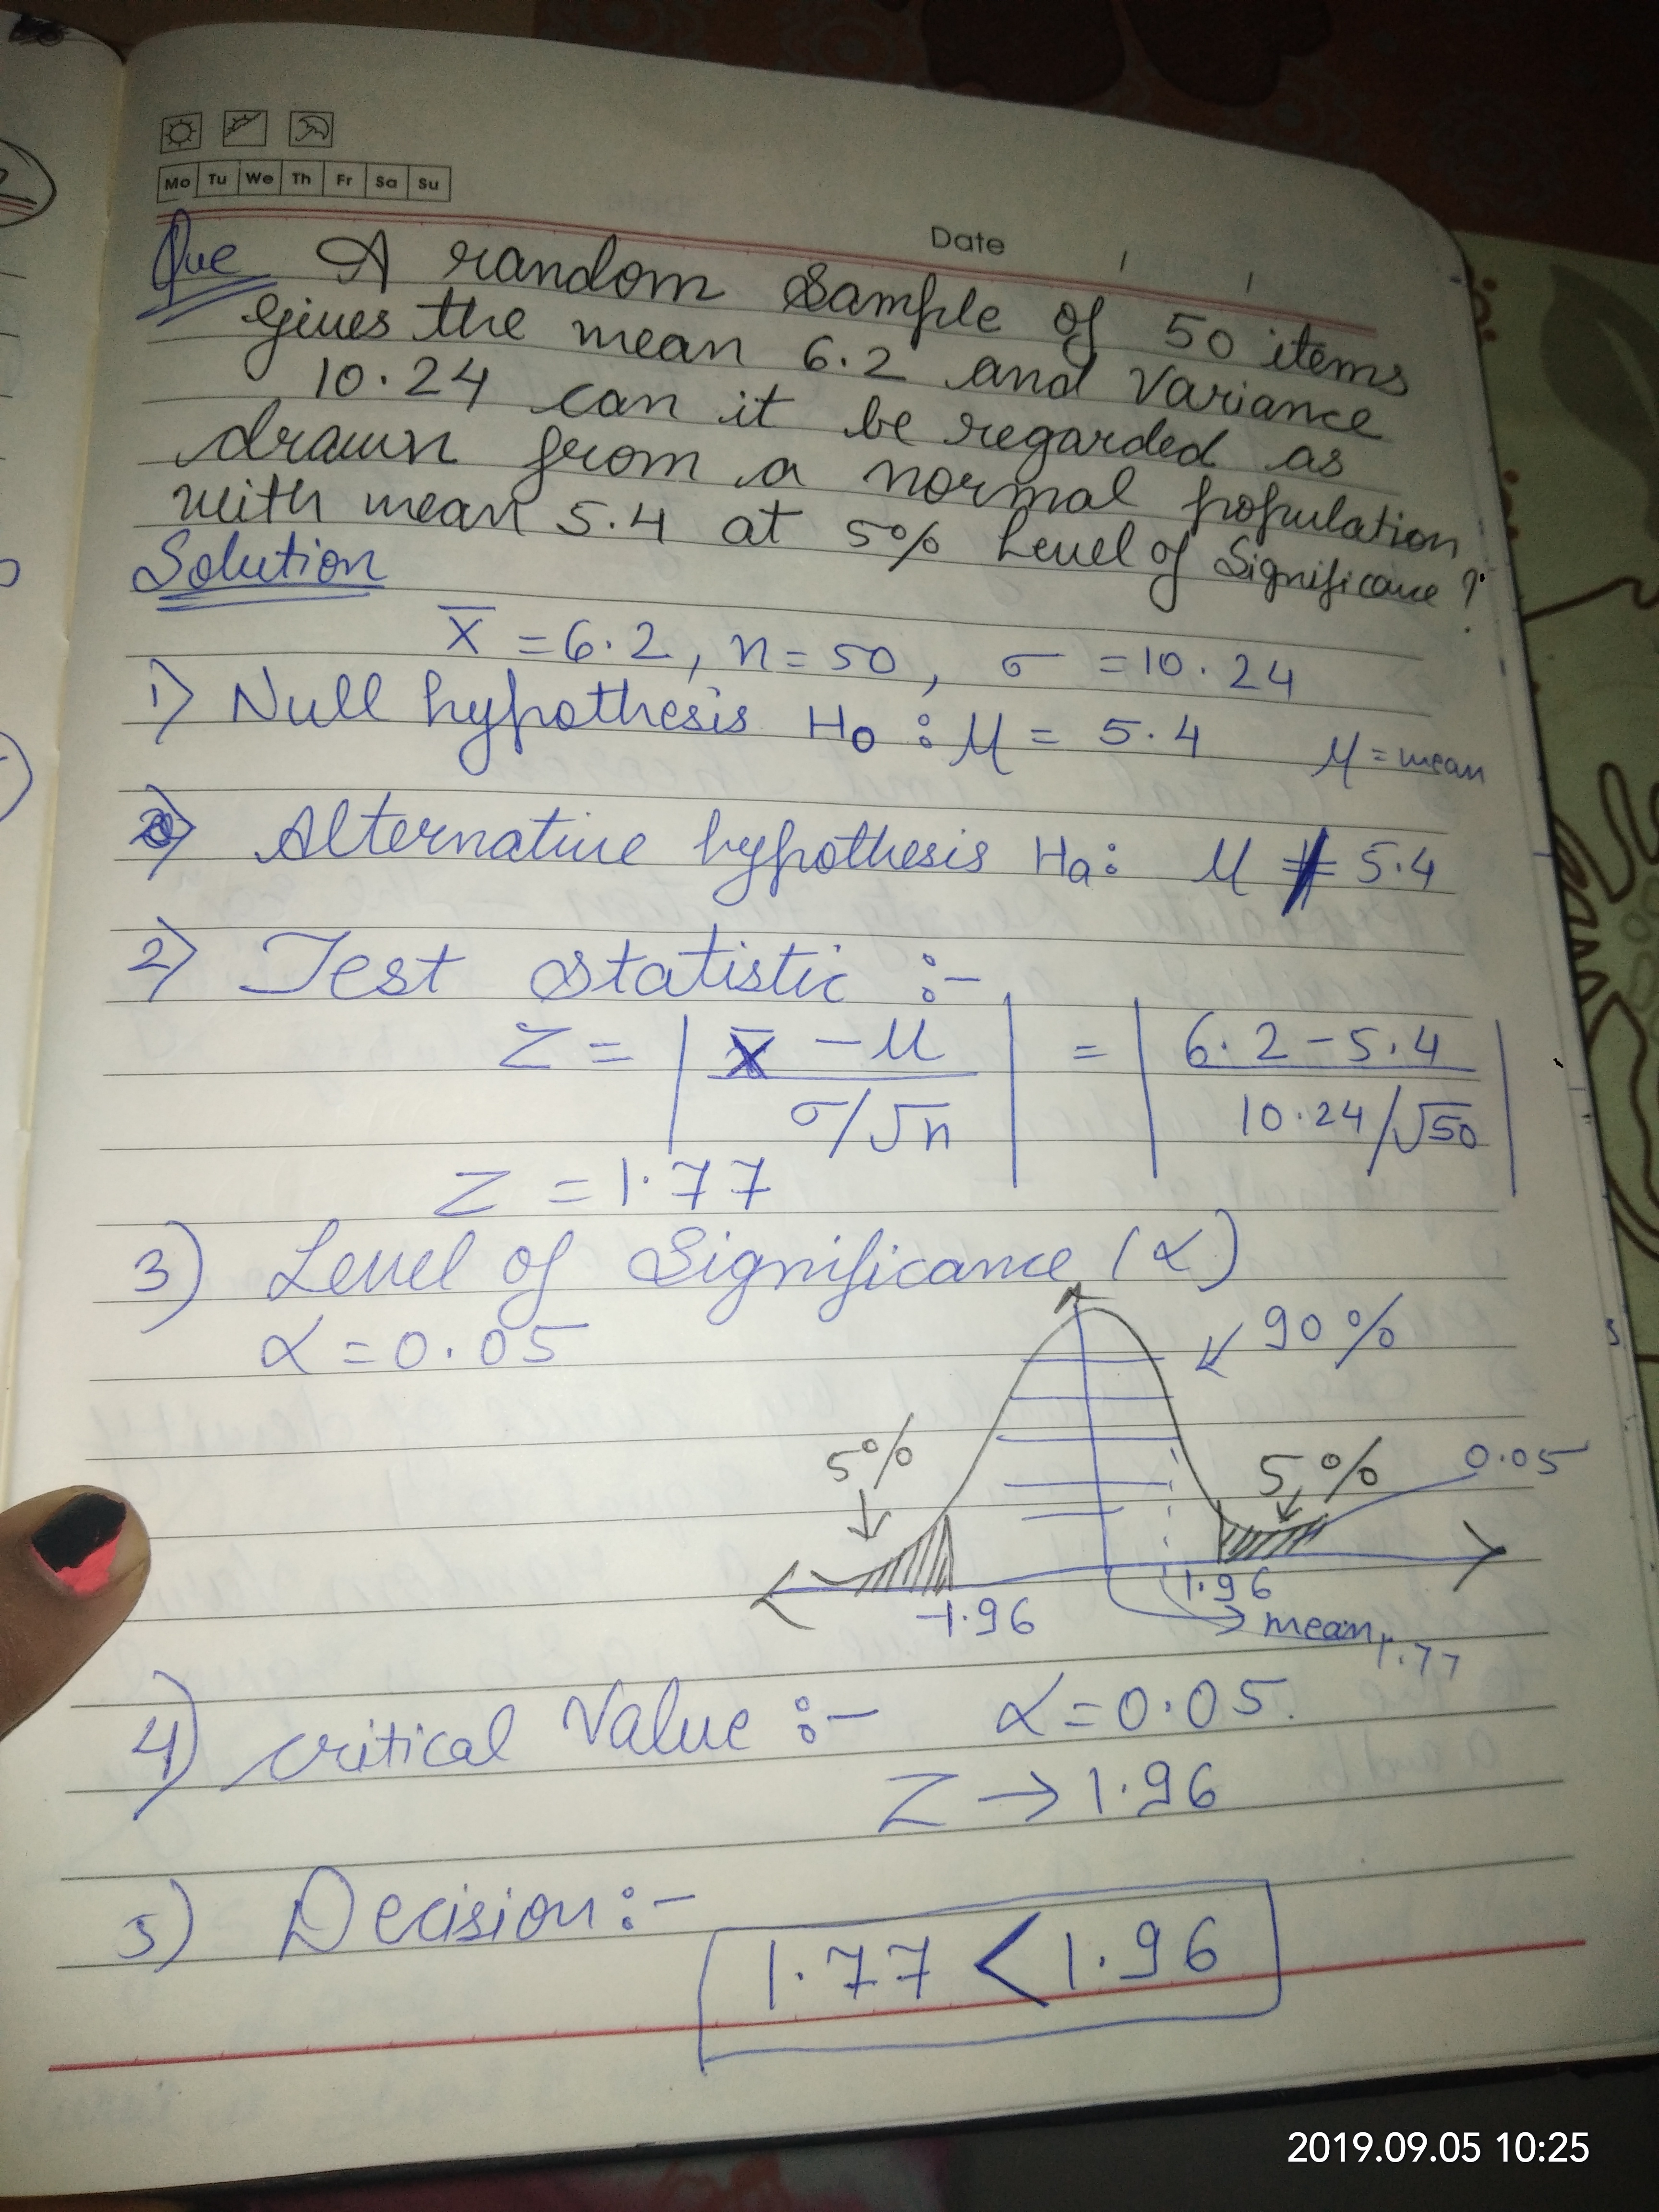 Mo Tu We Th Fr Sa Su
Date / /
Que A random Sample of 50 items
gives the mean 6.2 and Variance
10.24 can it be regarded as
drawn from a normal population
with mean 5.4 at 5% Level of Significance ?
Solution
X̅ = 6.2, n = 50, σ = 10.24
1) Null hypothesis H₀ : μ = 5.4 μ = mean
Alternative hypothesis Ha: μ ≠ 5.4
2) Test Statistic :-
Z = | X̅ - μ / σ/√n | = | 6.2 - 5.4 / 10.24/√50 |
Z = 1.77
3) Level of Significance (α)
α = 0.05
90%
5%
5%
0.05
-1.96
1.96
mean
1.77
4) critical Value :- α = 0.05.
Z → 1.96
5) Decision :-
1.77 < 1.96
2019.09.05 10:25